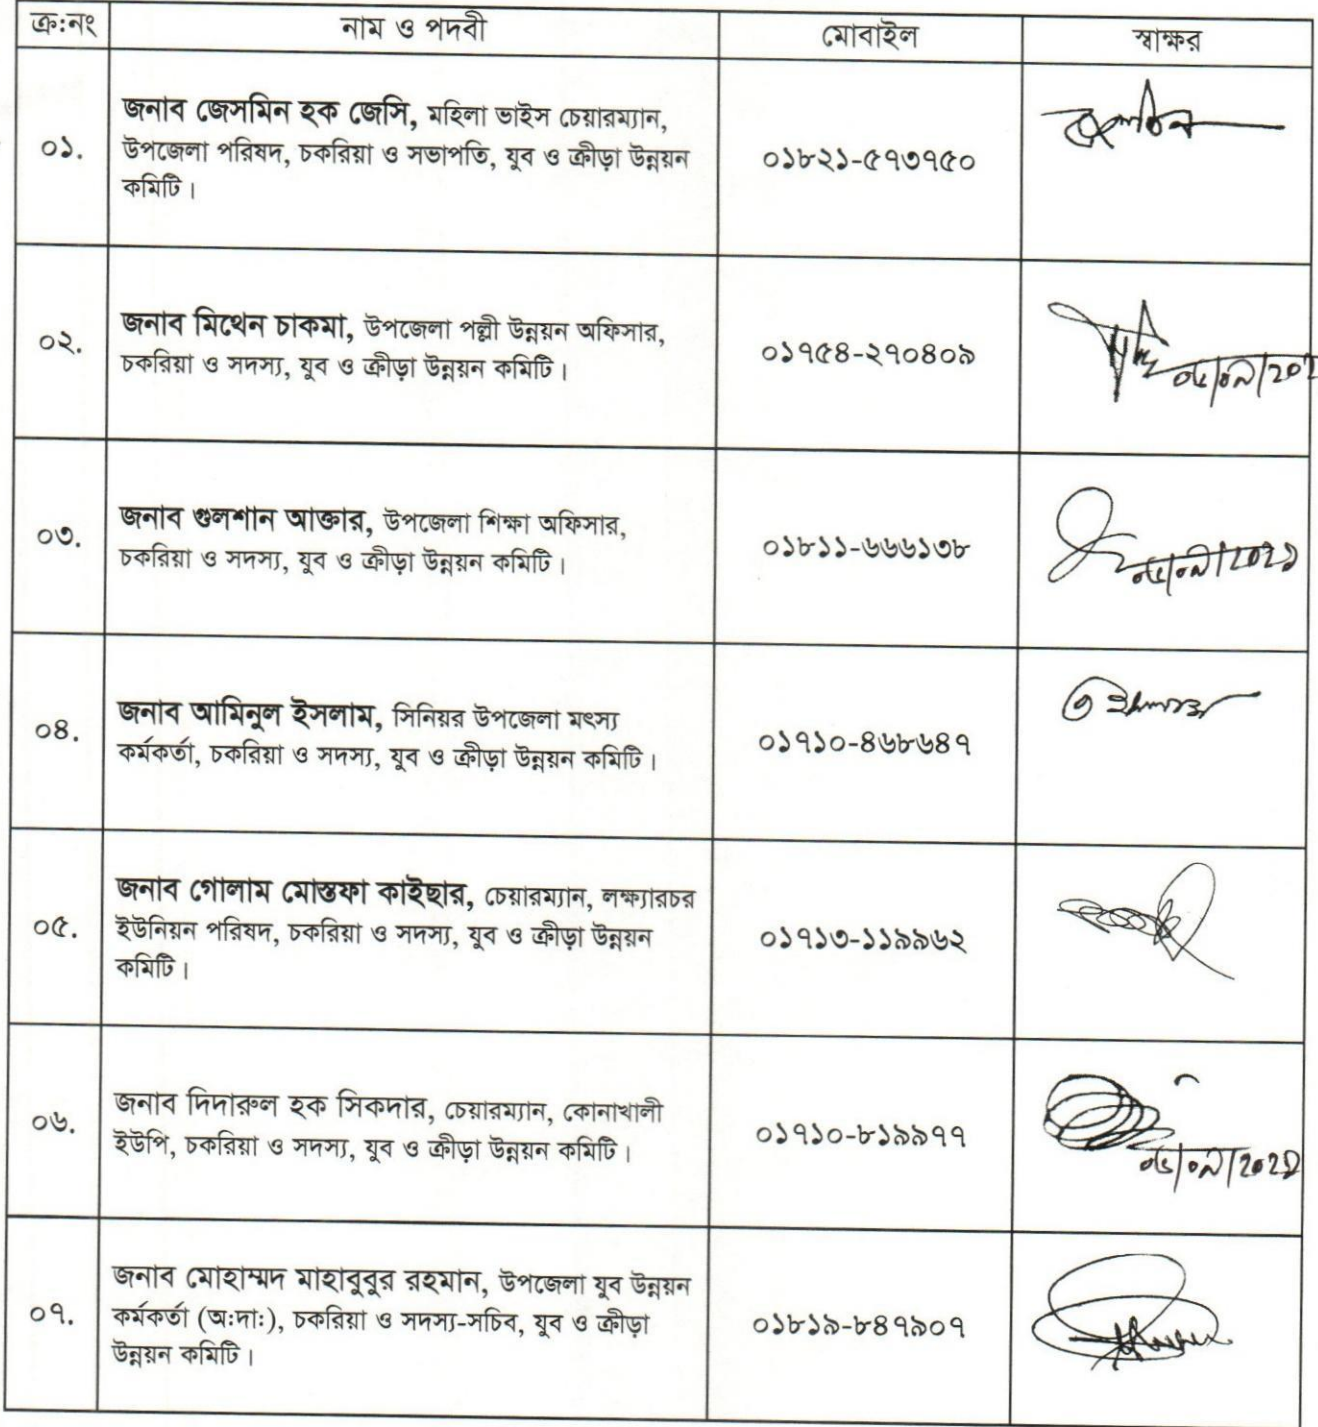 ক্র:নং নাম ও পদবী মোবাইল স্বাক্ষর
০১. জনাব জেসমিন হক জেসি, মহিলা ভাইস চেয়ারম্যান,
উপজেলা পরিষদ, চকরিয়া ও সভাপতি, যুব ও ক্রীড়া উন্নয়ন
কমিটি।
০১৮২১-৫৭৩৭৫০
০২. জনাব মিথেন চাকমা, উপজেলা পল্লী উন্নয়ন অফিসার,
চকরিয়া ও সদস্য, যুব ও ক্রীড়া উন্নয়ন কমিটি।
০১৭৫৪-২৭০৪০৯
০৩. জনাব গুলশান আক্তার, উপজেলা শিক্ষা অফিসার,
চকরিয়া ও সদস্য, যুব ও ক্রীড়া উন্নয়ন কমিটি।
০১৮১১-৬৬৬১৩৮
০৫/০৯/২০২১
০৪. জনাব আমিনুল ইসলাম, সিনিয়র উপজেলা মৎস্য
কর্মকর্তা, চকরিয়া ও সদস্য, যুব ও ক্রীড়া উন্নয়ন কমিটি।
০১৭১০-৪৬৮৬৪৭
০৫. জনাব গোলাম মোস্তফা কাইছার, চেয়ারম্যান, লক্ষ্যারচর
ইউনিয়ন পরিষদ, চকরিয়া ও সদস্য, যুব ও ক্রীড়া উন্নয়ন
কমিটি।
০১৭১৩-১১৯৯৬২
০৬. জনাব দিদারুল হক সিকদার, চেয়ারম্যান, কোনাখালী
ইউপি, চকরিয়া ও সদস্য, যুব ও ক্রীড়া উন্নয়ন কমিটি।
০১৭১০-৮১৯৯৭৭
০৫/০৯/২০২১
০৭. জনাব মোহাম্মদ মাহাবুবুর রহমান, উপজেলা যুব উন্নয়ন
কর্মকর্তা (অ:দা:), চকরিয়া ও সদস্য-সচিব, যুব ও ক্রীড়া
উন্নয়ন কমিটি।
০১৮১৯-৮৪৭৯০৭